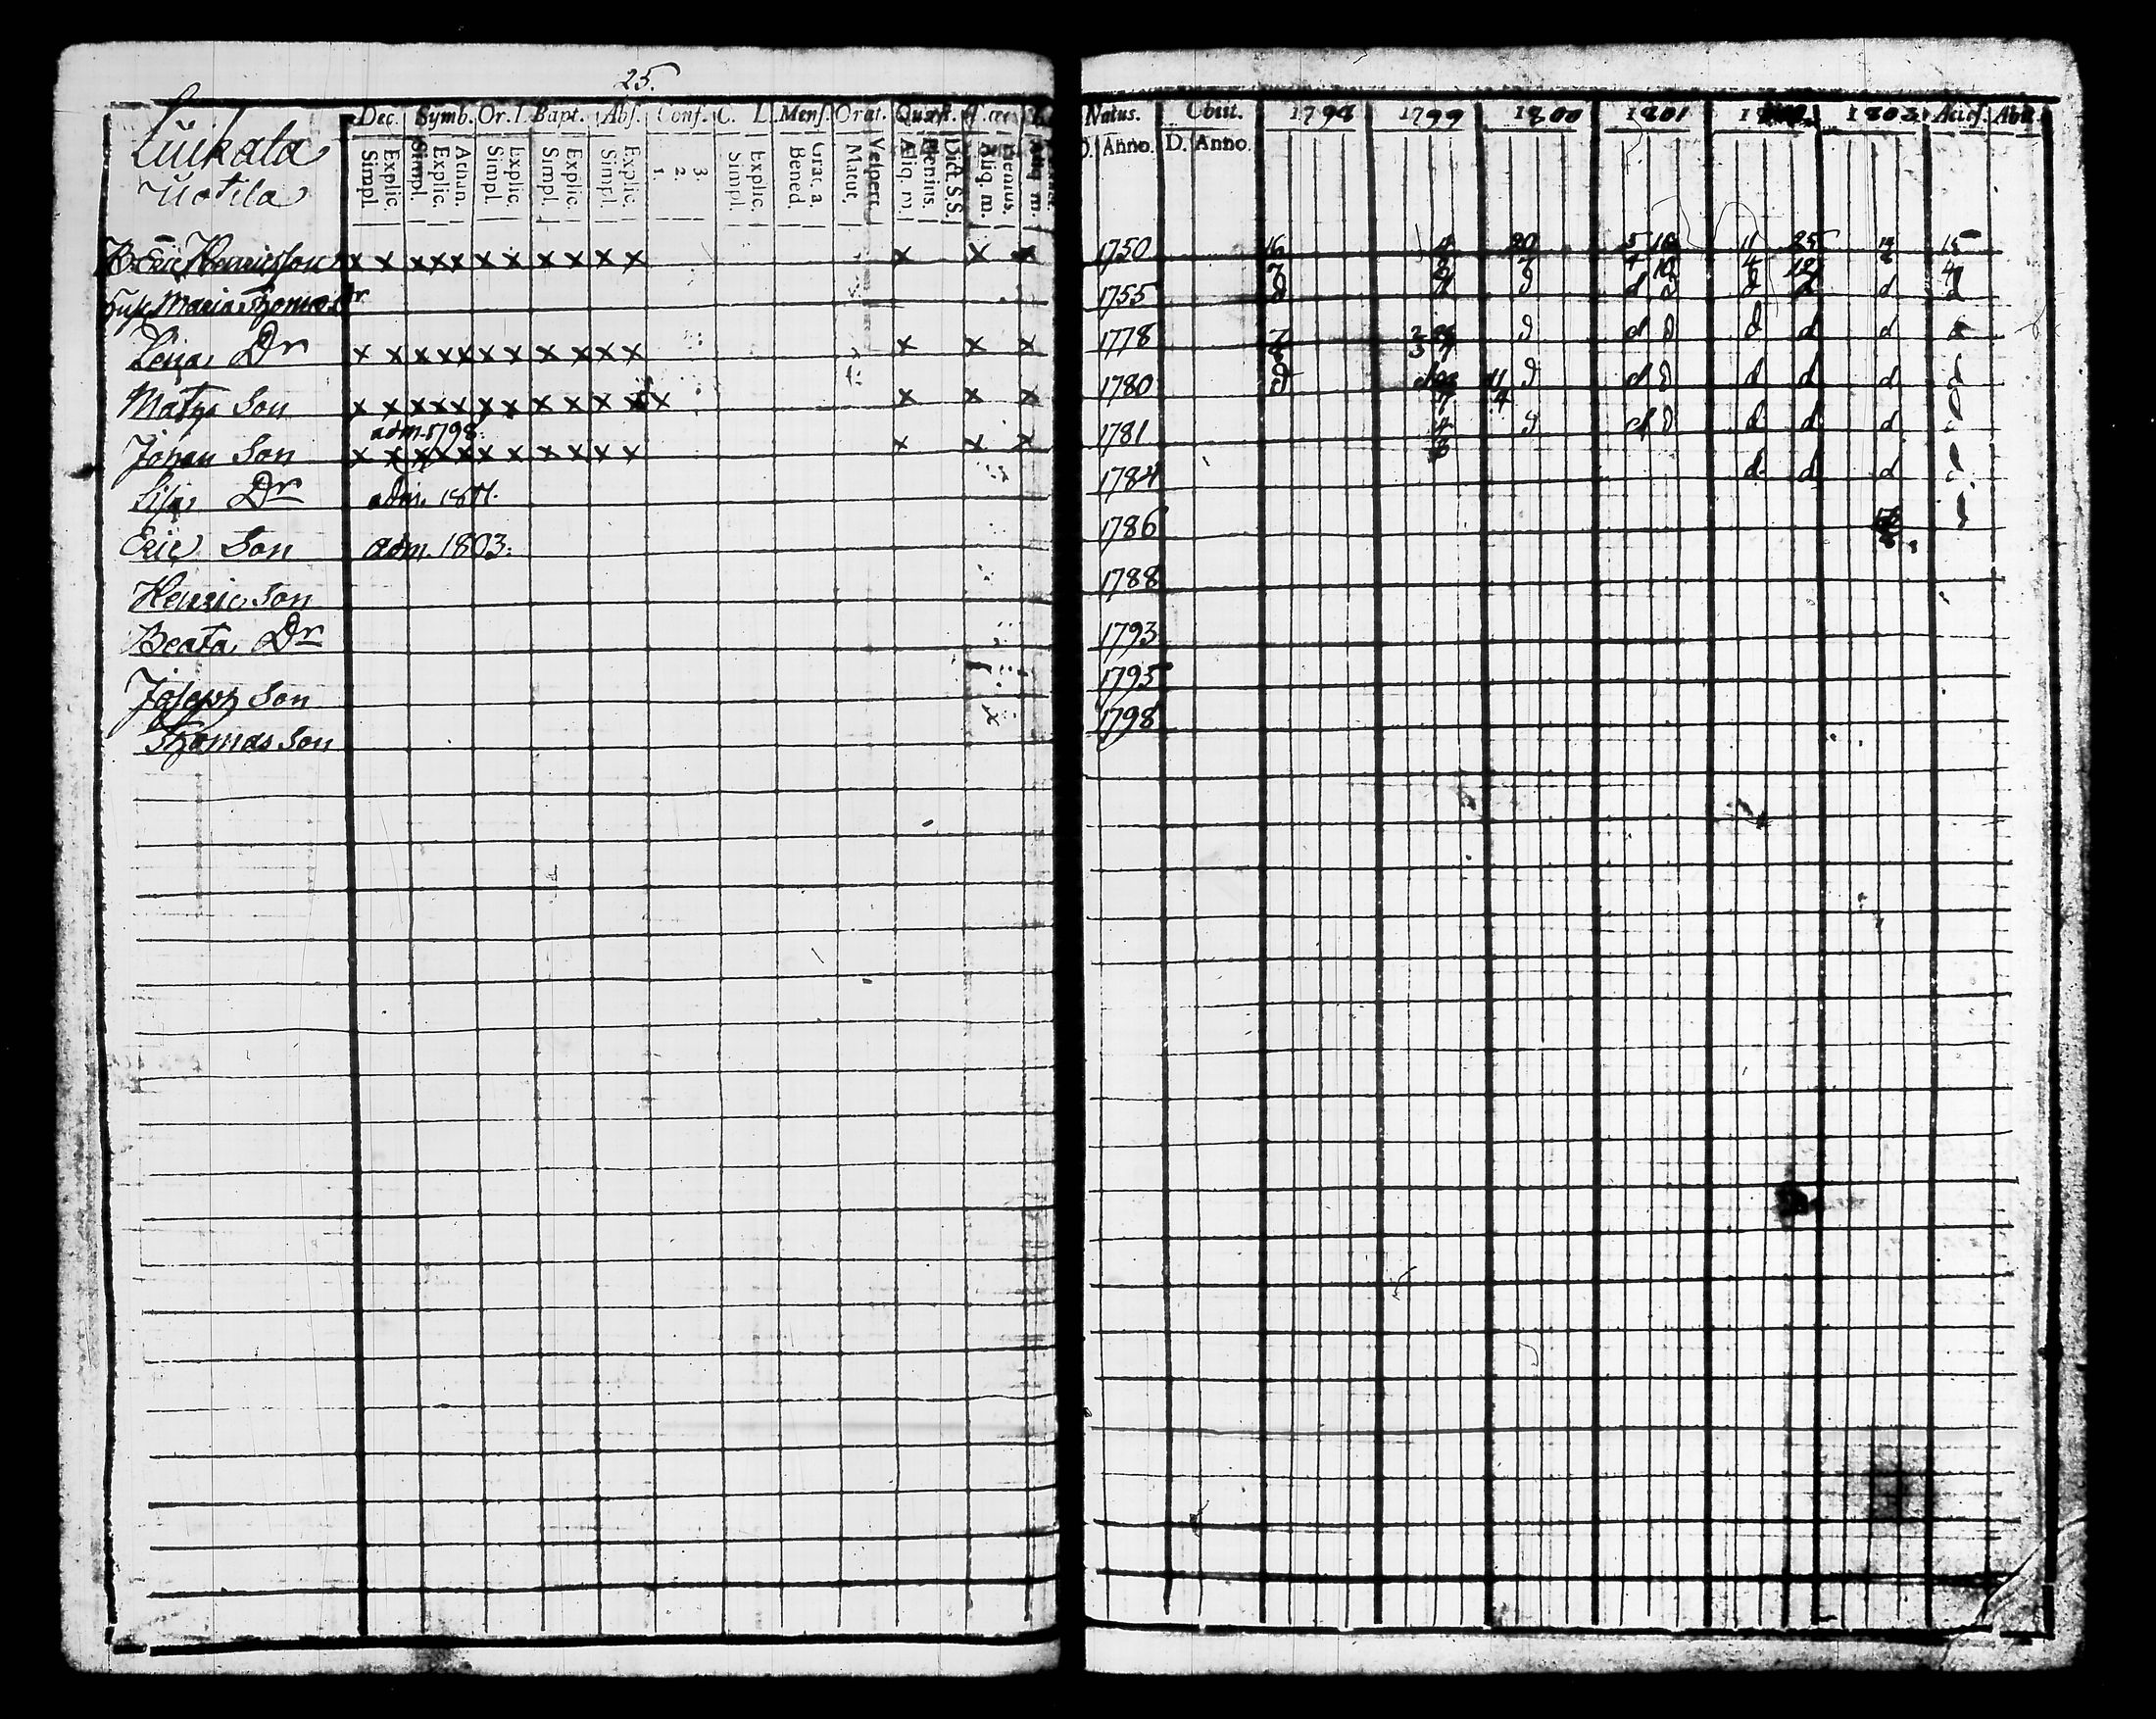 25.
Luikala
Uotila
Dec. Symb. Or. D. Bapt. Abs. Conf. C. L. Mens. Orat. Quæst.
Simpl. Explic. Simpl. Explic. Athan. Simpl. Explic. Simpl. Explic. Simpl. Explic. 1. 2. 3. Simpl. Explic. Bened. Grat. a. Matut. Vespert. Aliq. m. Plenius. Dict. S.S. Aliq. m. Plenius. Aliq. m.
Natus. Obiit. 1798 1799 1800 1801 1803 Access. Abit.
D. Anno. D. Anno.
B. Eric Henricsson x x x x x x x x x x x x x x 1750 16 4 20 5 18 11 25
Hust. Maria Thomæ Dr 1755 d d d d d d
Lena Dr x x x x x x x x x x x x x x 1778 d d d d d d
Matts Son x x x x x x x x x x x x x x x 1780 d d d d d d
adm. 1798.
Johan Son x x x x x x x x x x x x x x 1781 d d d d d
Lisa Dr adm. 1801. 1784 d d d
Eric Son adm. 1803. 1786
Henric Son 1788
Beata Dr 1793
Joseph Son 1795
Thomas Son 1798